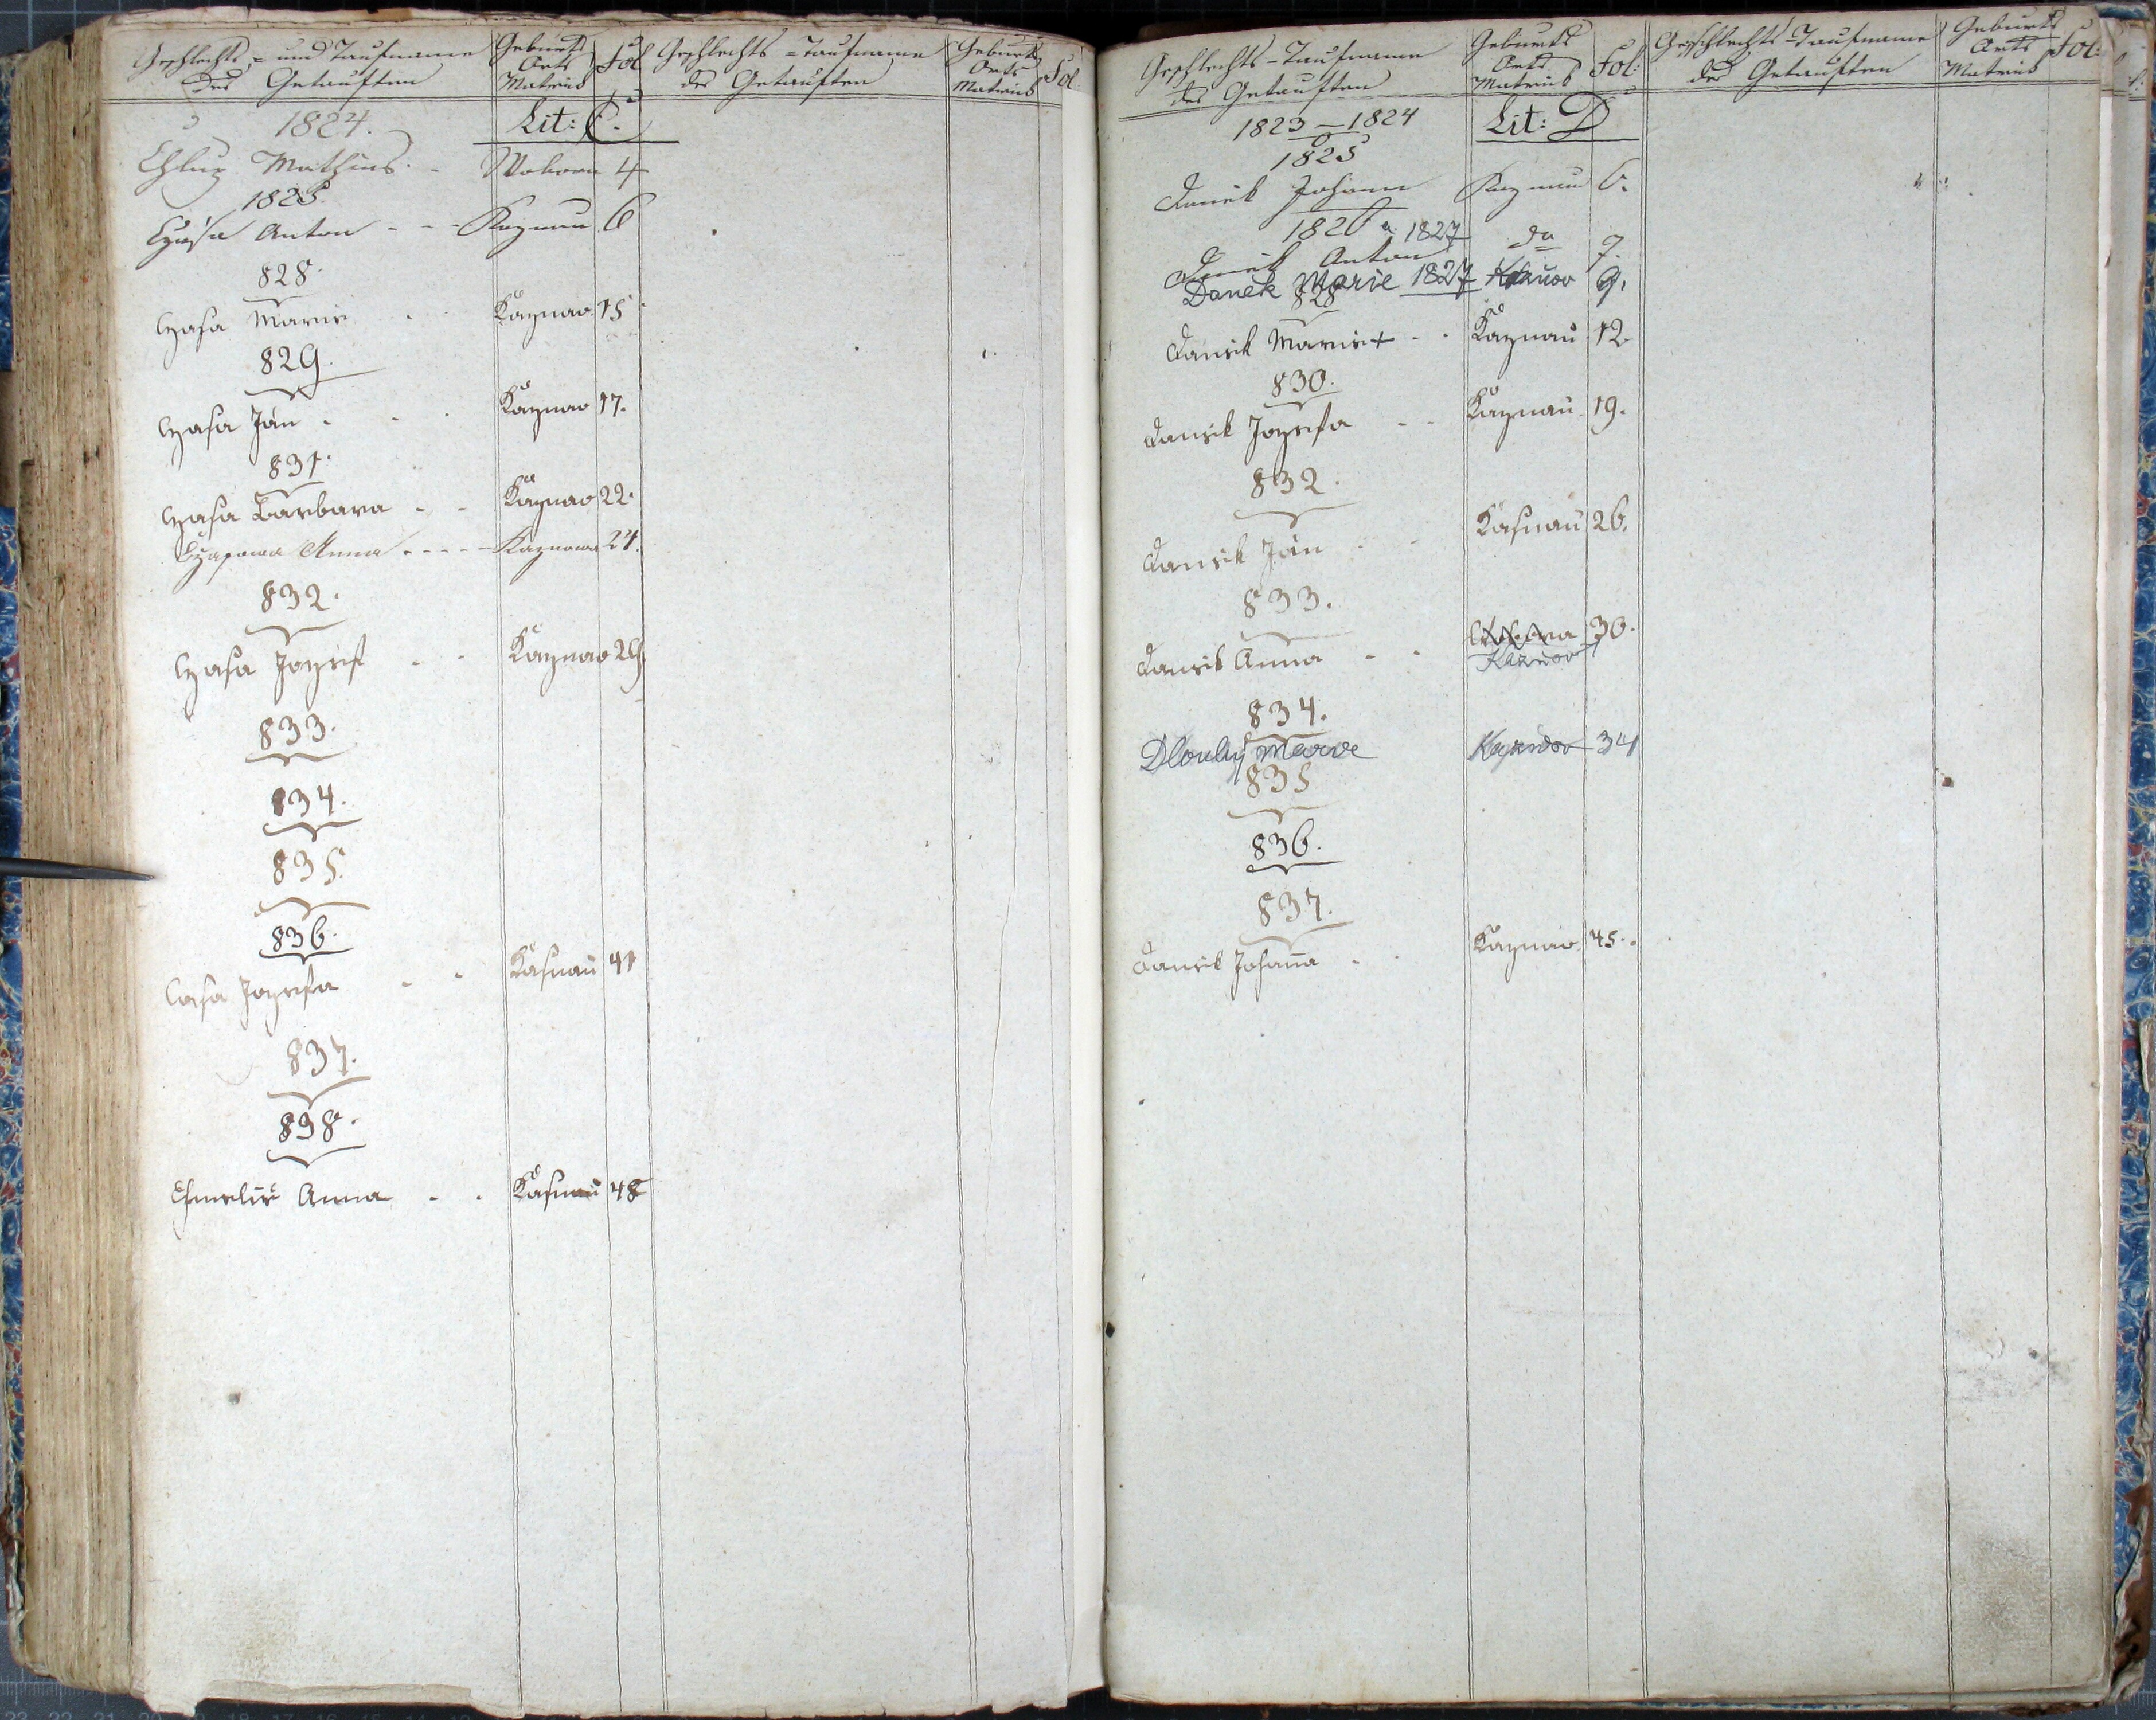 Geschlechts- und Taufname
des Getauften
Geburts
Orts
Matrik
Fol
Geschlechts-Taufname
des Getauften
Geburts
Orts
Matrik
Fol
1824.
Lit: C.
Chlup Mathias Wobora 4
1825.
Czasa Anton - - - Kaznau 6
828.
Czasa Marie Kaznao 15
829.
Czasa Ján Kaznao 17.
831.
Czasa Barbara - - Kaznao 22.
Czasowa Anna - - - - - Kaznowa 24.
832.
Czasa Jozef - - Kaznao
833.
834.
835.
836.
Casa Jozefa - - Kasnau 41
837.
838.
Anna - - Kasnau 48
Geschlechts-Taufname
des Getauften
Geburts
Orts
Matrik
Fol:
Geschlechts-Taufname
des Getauften
Geburts
Orts
Matrik
Fol:
1823–1824
Lit: D
1825
Danek Johann Kaznau 6.
1826 u 1827
Danek Anton do 7.
Danek Marie 1827 Kaznov 9.
828
Danek Marie + - - Kaznau 12
830.
Danek Jozefa - - Kaznau 19.
832.
Danek Ján - - Kasnau 26.
833.
Danek Anna - - 30.
Kaznov
834.
Dlouhý Marie Kaznov 34
835
836.
837.
Danek Johana - - Kaznao 45.